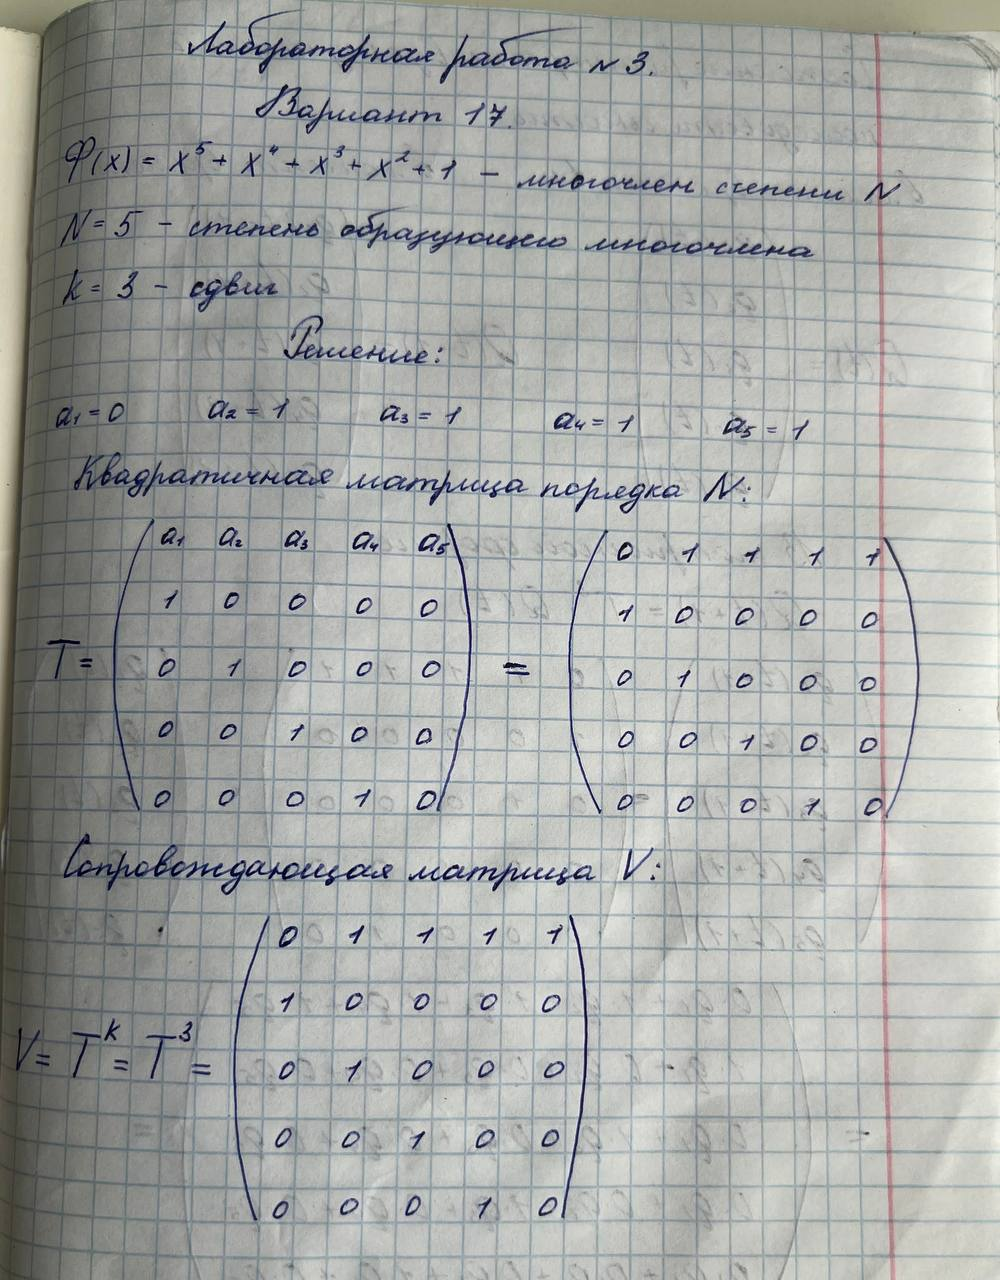 Лабораторная работа № 3.
Вариант 17.
Φ(x) = x⁵ + x⁴ + x³ + x² + 1 – многочлен степени N
N = 5 – степень образующего многочлена
k = 3 – сдвиг
Решение:
a₁ = 0 a₂ = 1 a₃ = 1 a₄ = 1 a₅ = 1
Квадратичная матрица порядка N:
a₁ a₂ a₃ a₄ a₅ 0 1 1 1 1
1 0 0 0 0 1 0 0 0 0
T = 0 1 0 0 0 = 0 1 0 0 0
0 0 1 0 0 0 0 1 0 0
0 0 0 1 0 0 0 0 1 0
Сопровождающая матрица V:
0 1 1 1 1
1 0 0 0 0
V = Tᵏ = T³ = 0 1 0 0 0
0 0 1 0 0
0 0 0 1 0